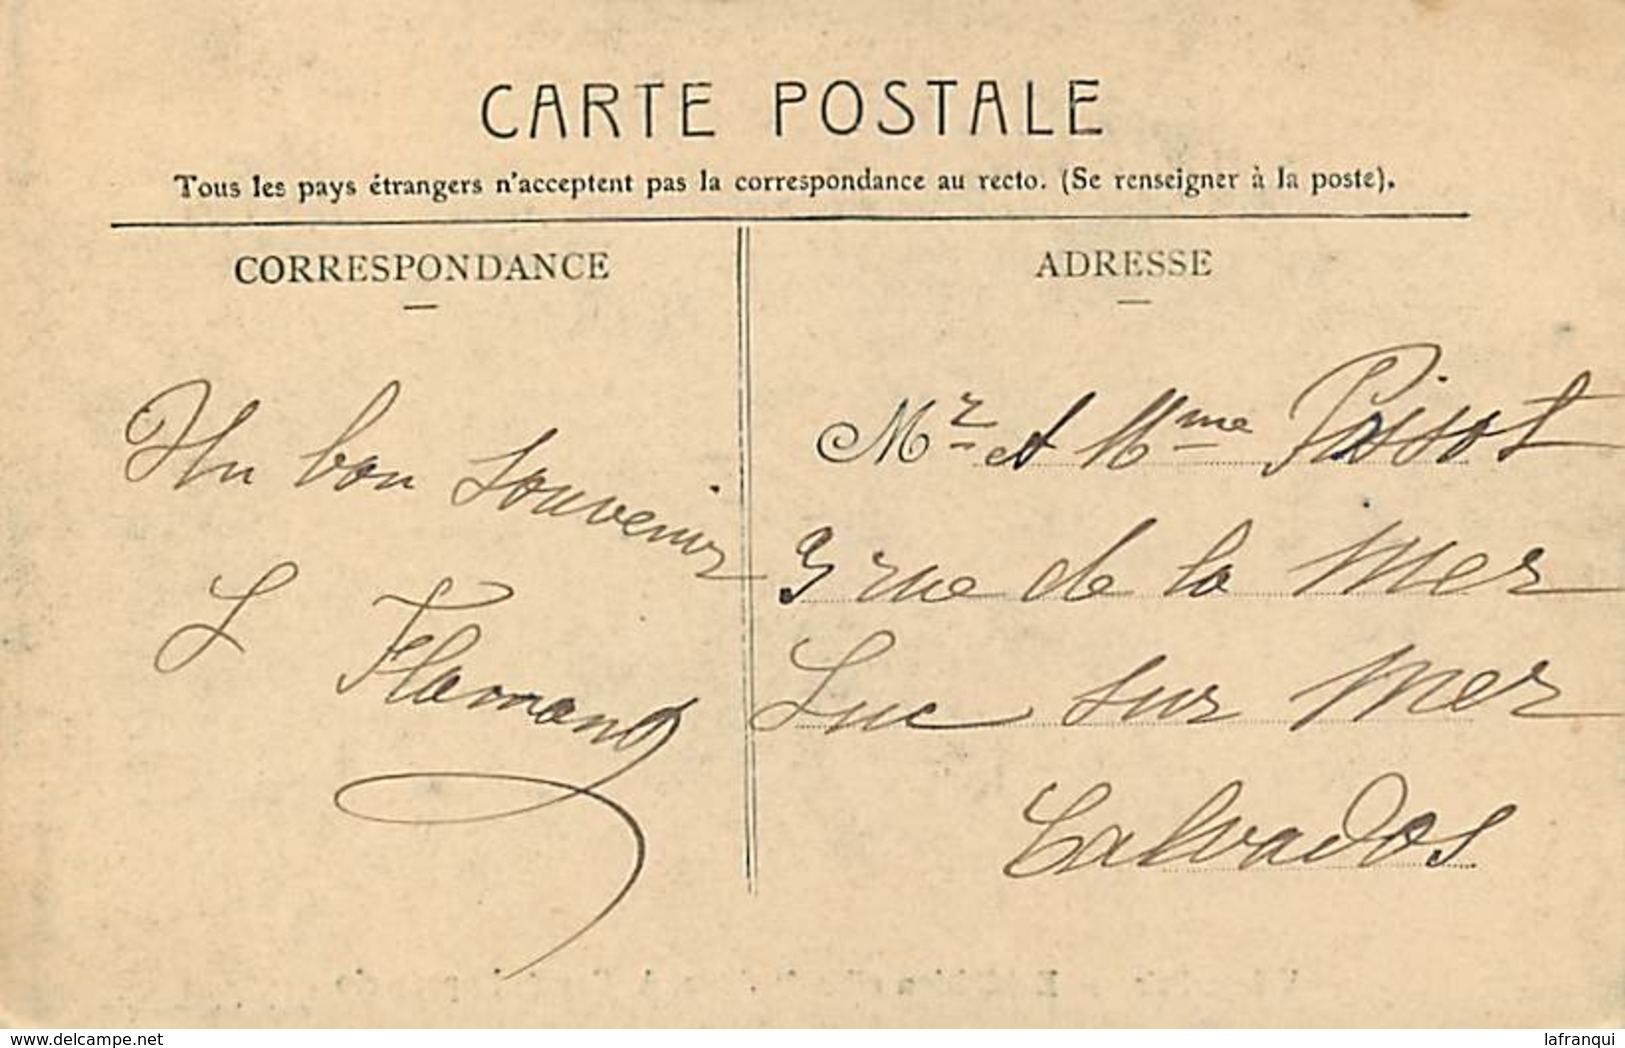 CARTE POSTALE
Tous les pays étrangers n'acceptent pas la correspondance au recto. (Se renseigner à la poste).
CORRESPONDANCE
ADRESSE
Un bon souvenir
L Flamand
Mr et Mme Pissot
3 rue de la Mer
Luc sur Mer
Calvados
www.delcampe.net
lafranqui